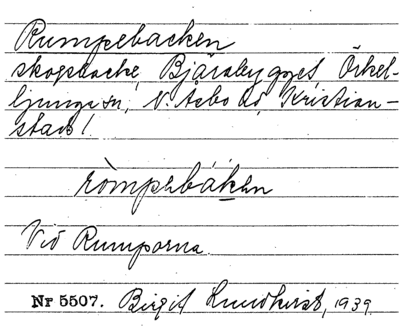 Rumpebacken
skogsbacke, Bjärabygget, Örkel-
ljunga sn, N. Åsbo hd, Kristian-
stads l
ròmpebáken
Vid Rumporna.
Nr 5507. Birgit Lundkvist, 1939